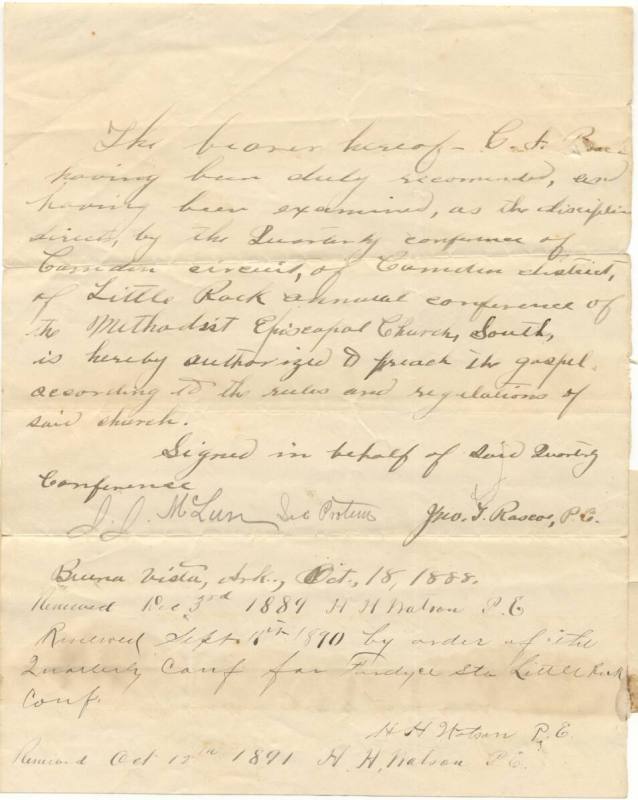 The bearer hereof - C. F.
having been duly recomended, and
having been examined, as the disciplin
directs, by the Quarterly conference of
Camden circuit, of Camden district,
of Little Rock annual conference of
the Methodist Episcopal Church, South,
is hereby authorized to preach the gospel
according to the rules and regulations of
said church.
Signed in behalf of said Quarterly
Conference
J. J. Sec Protem Jno. F. Rascoe, P.E.
Buena Vista, Ark., Oct. 18, 1888.
Renewed Dec 3rd 1889 H H Watson P.E
Renewed Sept 1890 by order of the
Quarterly Conf for Fordyce Sta Little Rock
Conf.
H H Watson P.E.
Renewed Oct 1891 H. H. Watson P.E.